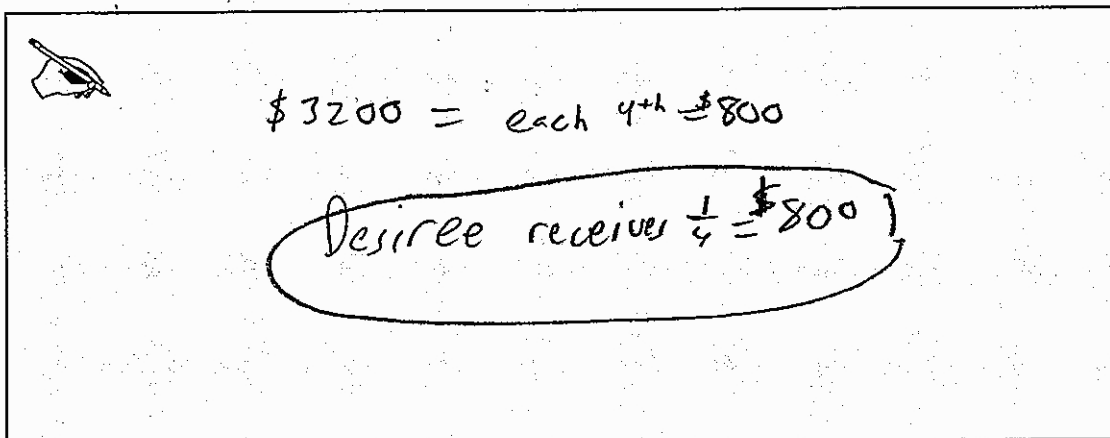 $3200 = each 4th = $800
Desiree receives 1/4 = $800